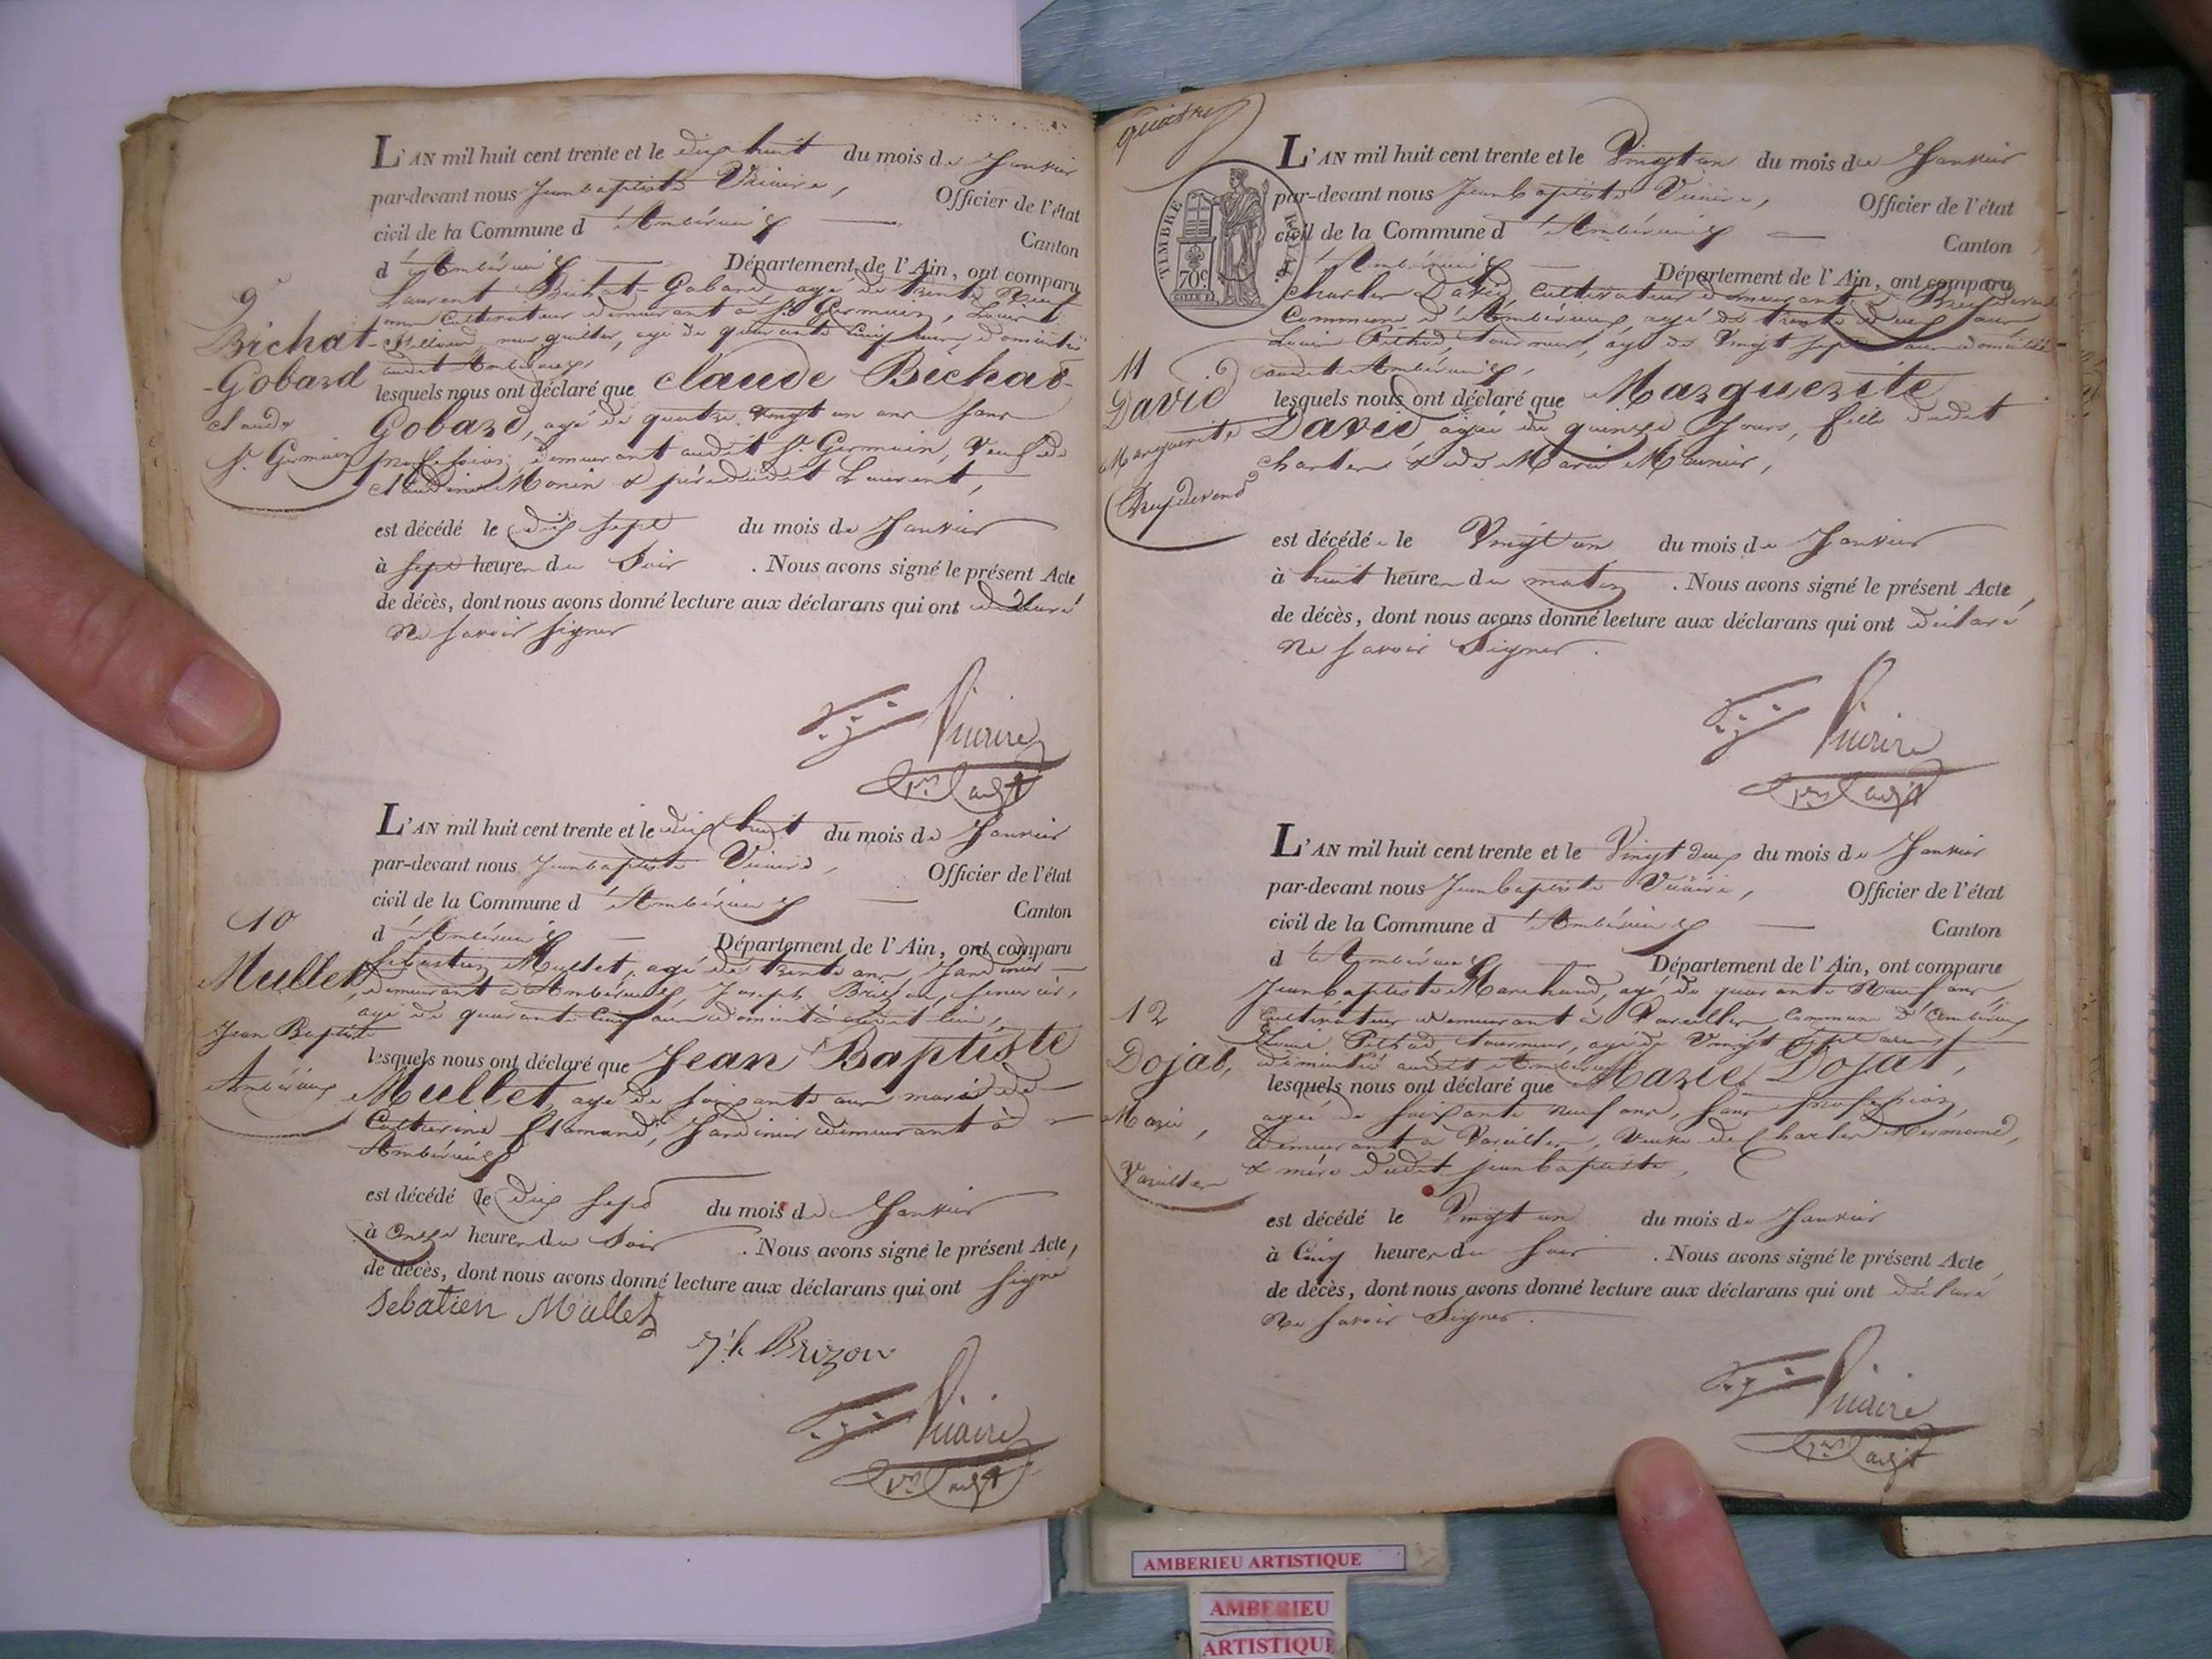 L'AN mil huit cent trente et le dix huit du mois de Janvier
par-devant nous Jean baptiste Vicaire, Officier de l'état
civil de la Commune d'Ambérieux Canton
d'Ambérieux Département de l'Ain, ont comparu
Laurent Bichat-Gobard agé de trente neuf
ans Cultivateur demeurant à St. Germain, Louis
marguiller, agé de quarante Cinq ans, domicilié
audit Ambérieux,
lesquels nous ont déclaré que Claude Bichat-
Gobard, agé de quatre Vingt un ans Sans
profession, demeurant audit St. Germain, Veuf de
Claudine Monin & père dudit Laurent,
est décédé le dix Sept du mois de Janvier
à Sept heures du Soir . Nous avons signé le présent Acte
de décès, dont nous avons donné lecture aux déclarans qui ont déclaré
ne Savoir Signer
Vicaire
1er adjt
9
Bichat-
-Gobard
Claude
St. Germain
L'AN mil huit cent trente et le dix huit du mois de Janvier
par-devant nous Jean baptiste Vicaire, Officier de l'état
civil de la Commune d'Ambérieux Canton
d'Ambérieux Département de l'Ain, ont comparu
Sébastien Mullet, agé de trente ans, Jardinier
demeurant à Ambérieux, Joseph Brizon,
agé de quarante Cinq ans domicilié audit lieu,
lesquels nous ont déclaré que Jean Baptiste
Mullet, agé de soixante ans mari de
Catherine Flamand, Jardinier demeurant à
Ambérieux
est décédé le dix Sept du mois de Janvier
à Onze heures du Soir . Nous avons signé le présent Acte,
de décès, dont nous avons donné lecture aux déclarans qui ont Signé
Sebatien Mullet
Jh Brizon
Vicaire
1er adjt
10
Mullet,
Jean Baptiste
Ambérieux
quatre
TIMBRE ROYAL
70c.
L'AN mil huit cent trente et le Vingt un du mois de Janvier
par-devant nous Jean baptiste Vicaire, Officier de l'état
civil de la Commune d'Ambérieux Canton
d'Ambérieux Département de l'Ain, ont comparu
Charles David, Cultivateur demeurant à Breydevend
Commune d'Ambérieux, agé de trente deux ans
Louis Pethod, tourneur, agé de Vingt Sept ans domicilié
audit Ambérieux,
lesquels nous ont déclaré que Marguerite
David, agée de quinze Jours, fille dudit
Charles & de Marie Meunier,
est décédée le Vingt un du mois de Janvier
à huit heures du matin . Nous avons signé le présent Acte,
de décès, dont nous avons donné lecture aux déclarans qui ont déclaré
ne Savoir Signer.
Vicaire
1er adjt
11
David
Marguerite
Breydevend
L'AN mil huit cent trente et le Vingt deux du mois de Janvier
par-devant nous Jean baptiste Vicaire, Officier de l'état
civil de la Commune d'Ambérieux Canton
d'Ambérieux Département de l'Ain, ont comparu
Jean baptiste Marchand, agé de quarante Neuf ans
Cultivateur demeurant à Vareilles, Commune d'Ambérieux
Louis Pethod tourneur, agé de Vingt Sept ans,
domicilié audit Ambérieux
lesquels nous ont déclaré que Marie Dojat,
agée de Soixante Neuf ans, Sans profession,
demeurant à Vareilles, Veuve de Charles
& mère dudit Jean baptiste,
est décédé le Vingt un du mois de Janvier
à Cinq heures du Soir . Nous avons signé le présent Acte,
de décès, dont nous avons donné lecture aux déclarans qui ont déclaré
ne Savoir Signer.
Vicaire
1er adjt
12
Dojat,
Marie,
Vareilles
AMBERIEU ARTISTIQUE
AMBERIEU
ARTISTIQUE